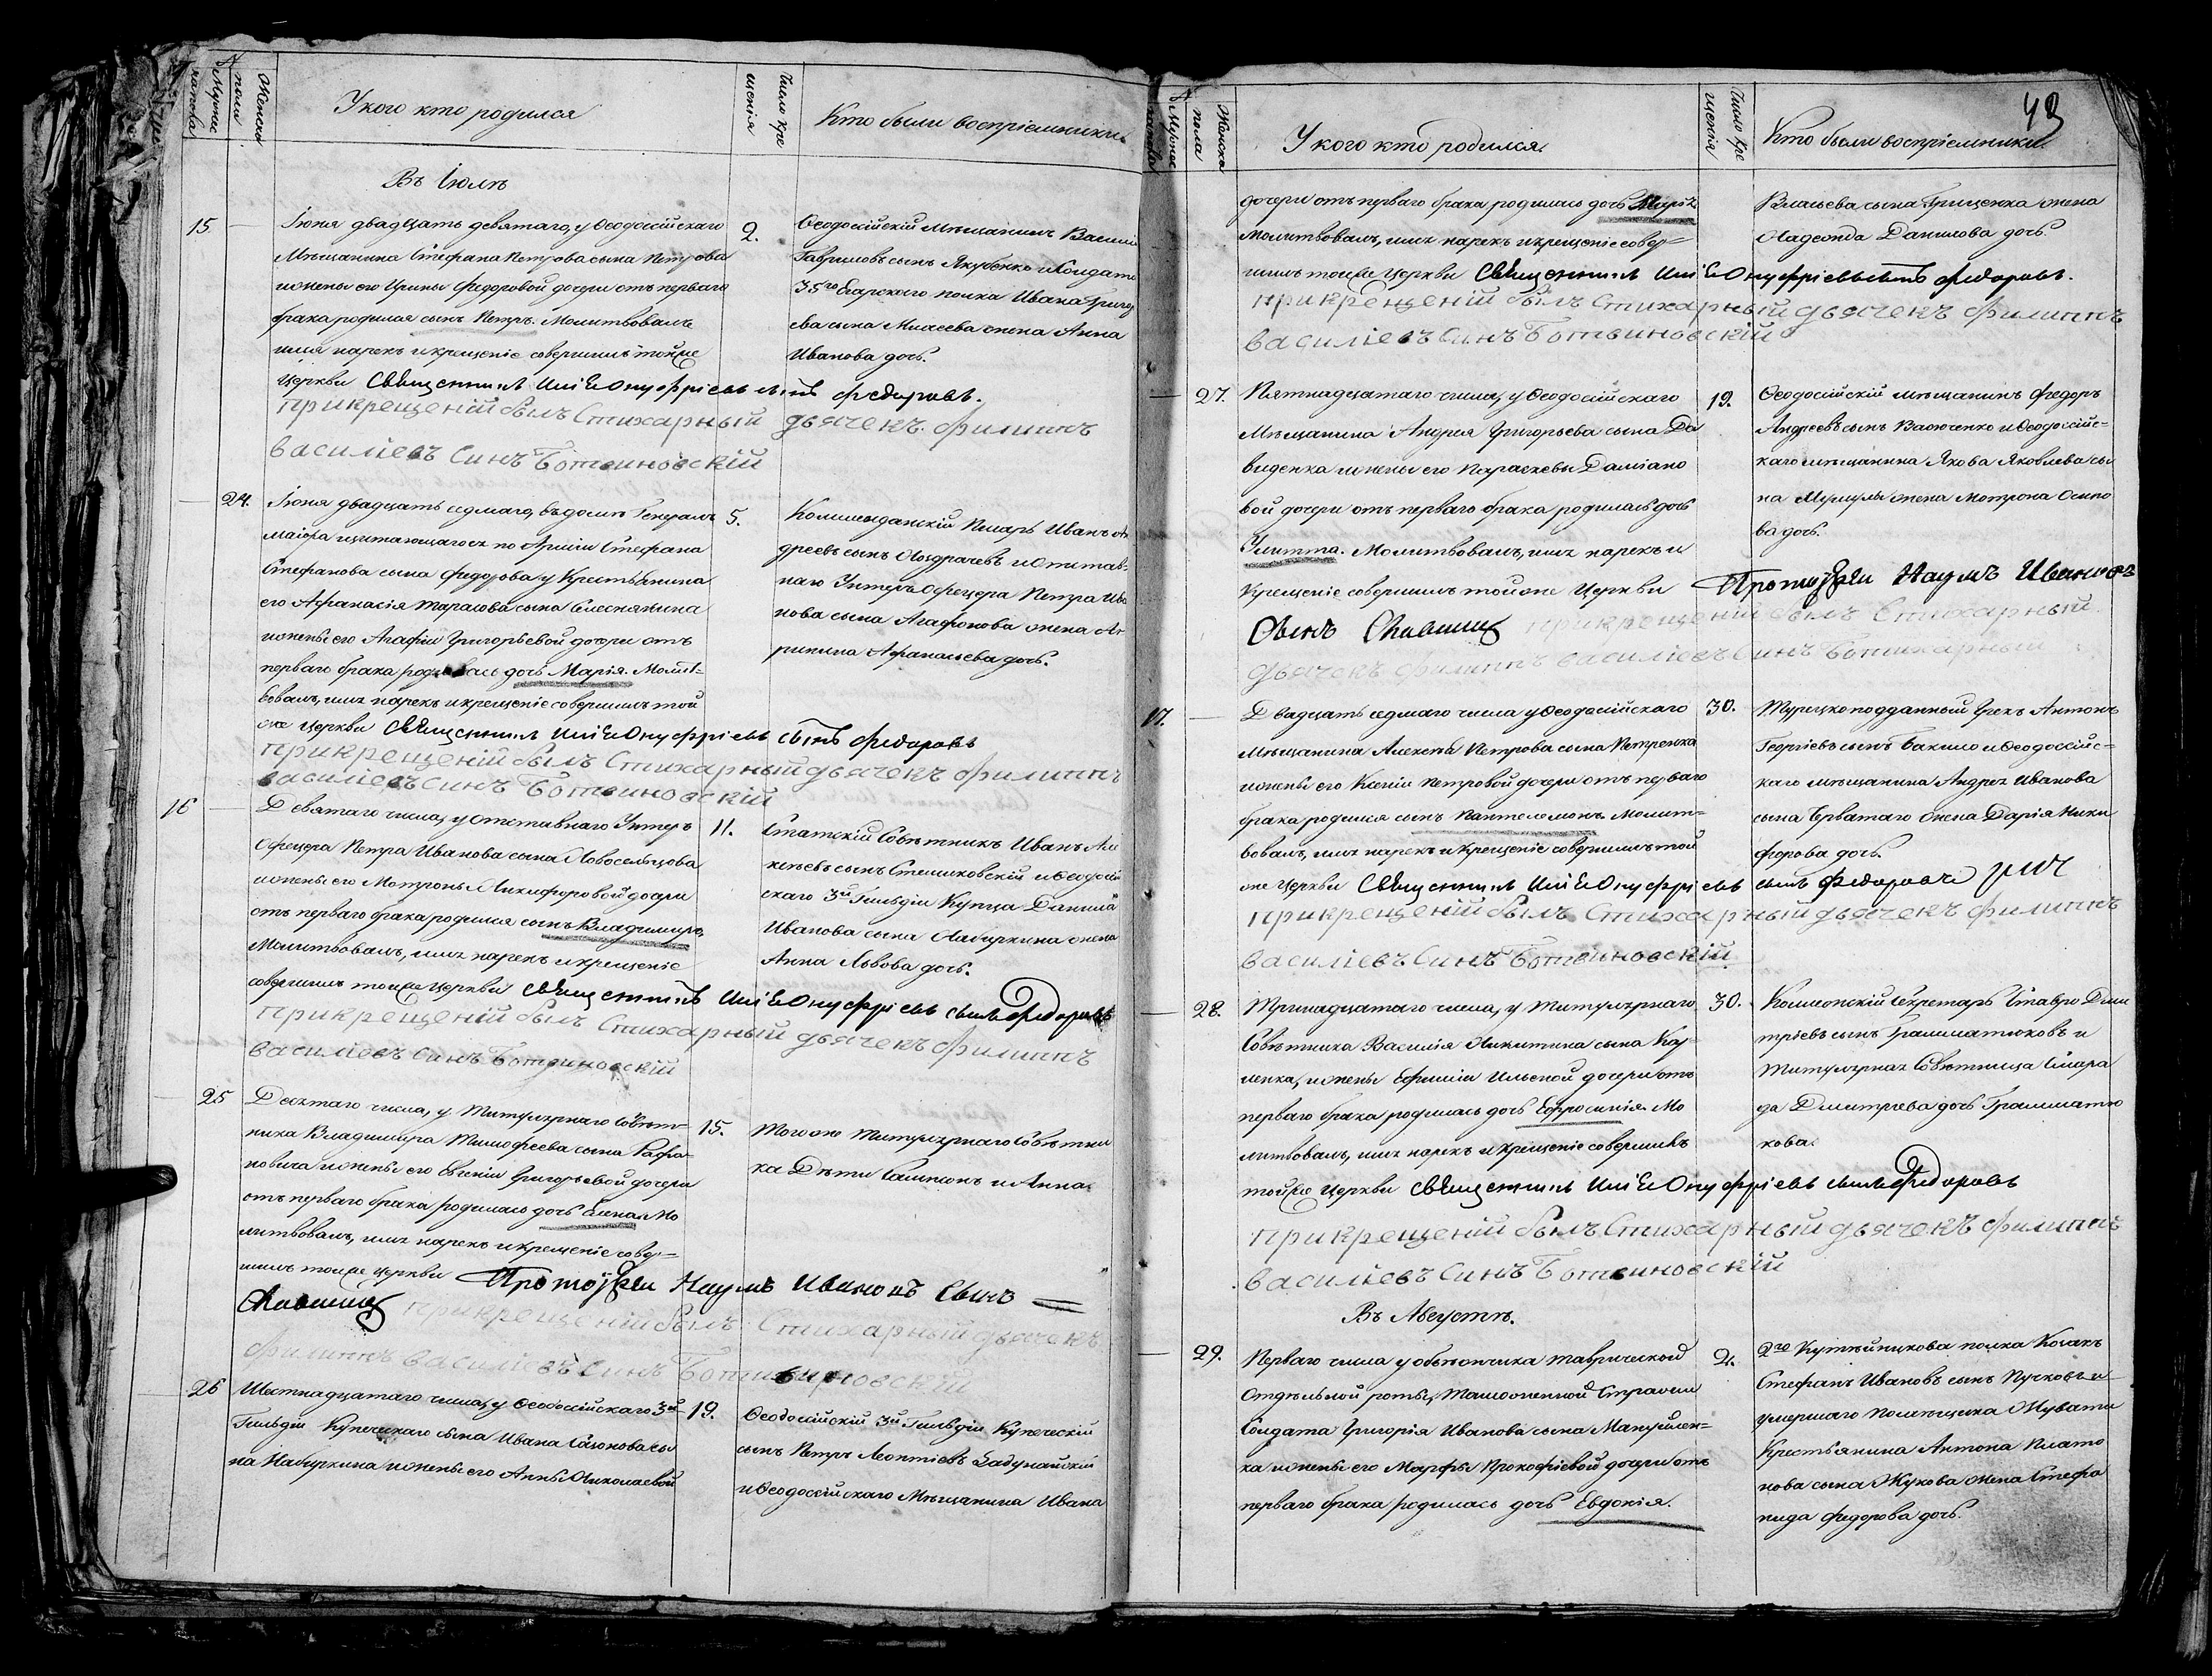 № Мужескаго
пола
Женска
У кого кто родился
Число кре
щенія
Кто были воспріемники
Въ Іюлѣ
15
Іюня двадцать девятаго, у Ѳеодосійскаго
Мѣщанина Стефана Петрова сына Петрова
и жены его Ирины Федоровой дочери отъ перваго
брака родился сынъ Петръ. Молитвовалъ
имя нарекъ и крещеніе совершилъ тойже
Церкви Священникъ Илія Онуфріевъ сынъ Федоровъ.
при крещеній былъ Стихарный дьячекъ Филиппъ
Василіевъ Синъ Ботвиновскій
2.
Ѳеодосійскій Мѣщанинъ Василій
Гавриловъ сынъ Якубенко и Солдата
35го Егарскаго полка Ивана Григор
ева сына Мисева жена Анна
Иванова дочь.
24.
Іюня двадцать седмаго, въ домѣ Генералъ
маіора щитающагося по Арміи Стефана
Стефанова сына Федорова у Крестьянина
его Афанасія Тарасова сына Слеснякина
и жены его Агафіи Григорьевой дочери отъ
перваго брака родилась дочь Марія. Молит-
вовалъ, имя нарекъ и крещеніе совершилъ той
же Церкви Священникъ Илія Онуфріевъ сынъ Федоровъ
при крещеній былъ Стихарный дьячекъ Филиппъ
Василіевъ Синъ Ботвиновскій
5.
Коммендантскій Писарь Иванъ Ан
дреевъ сынъ Ноздрачевъ и Отстав-
наго Унтеръ Офецера Петра Ива
нова сына Агафонова жена Аг
рипина Афанасьева дочь.
16
Девятаго числа, у отставнаго Унтеръ
Офецера Петра Иванова сына Новосельцова
и жены его Мотроны Никифоровой дочери
отъ перваго брака родился сынъ Владимиръ,
Молитвовалъ, имя нарекъ и крещеніе
совершилъ тойже Церкви Священникъ Илія Онуфріевъ сынъ Федоровъ
при крещеній былъ Стихарный дьячекъ Филиппъ
Василіевъ Синъ Ботвиновскій
11.
Статскій Совѣтникъ Иванъ Але
ксѣевъ сынъ Стешковскій и Ѳеодосій
скаго 3й Гильдіи Купца Данила
Иванова сына Набиркина жена
Анна Львова дочь.
25
Десятаго числа, у Титулярнаго Совѣт-
ника Владимира Тимофеева сына Рафа-
ловича и жены его Евгеніи Григорьевой дочери
отъ перваго брака родилась дочь Елена. Мо
литвовалъ, имя нарекъ и крещеніе совер-
шилъ тойже Церкви Протоіерей Наумъ Ивановъ Сынъ
при крещеній былъ Стихарный дьячекъ
Филиппъ Василіевъ Синъ Ботвиновскій
15.
Тогоже Титулярнаго Совѣтни
ка Дѣти Сампсонъ и Анна
26
Шестнадцатаго числа, у Ѳеодосійскаго 3й
Гильдіи Купеческаго сына Ивана Сазонова сы
на Набиркина и жены его Анны Николаевой
19.
Ѳеодосійскій 3й Гильдіи Купеческій
сынъ Петръ Леонтіевъ Задунайскій
и Ѳеодосійскаго Мѣщанина Ивана
43
№ Мужескаго
пола
Женска
У кого кто родился
Число кре
щенія
Кто были воспріемники
дочери отъ перваго брака родилась дочь Марія
Молитвовалъ, имя нарекъ и крещеніе совер-
шилъ тойже Церкви Священникъ Илія Онуфріевъ сынъ Федоровъ.
при крещеній былъ Стихарный дьячекъ Филиппъ
Василіевъ Синъ Ботвиновскій
Власьева сына Грищенка жена
Данилова дочь.
27.
Пятнадцатаго числа, у Ѳеодосійскаго
Мѣщанина Андрея Григорьева сына Да
виденка и жены его Параскевы Даміано
вой дочери отъ перваго брака родилась дочь
Улитта. Молитвовалъ, имя нарекъ и
Крещеніе совершилъ тойже Церкви Протоіерей Наумъ Ивановъ
Сынъ при крещеній былъ Стихарный
дьячекъ Филиппъ Василіевъ Синъ
19.
Ѳеодосійскій мѣщанинъ Федоръ
Андреевъ сынъ Васюченко и Ѳеодосійс-
каго мѣщанина Якова Яковлева сы
на жена Мотрона Осипо
ва дочь.
17.
Двадцать седмаго числа у Ѳеодосійскаго
Мѣщанина Алексѣя Петрова сына Петренка
и жены его Ксеніи Петровой дочери отъ перваго
брака родился сынъ Пантелемонъ. Молит-
вовалъ, имя нарекъ и Крещеніе совершилъ той
же Церкви Священникъ Илія Онуфріевъ сынъ Федоровъ
при крещеній былъ Стихарный дьячекъ Филиппъ
Василіевъ Синъ Ботвиновскій
30.
Турецкоподданный Грекъ Антонъ
Георгіевъ сынъ и Ѳеодосійс-
каго мѣщанина Андрея Иванова
сына жена Дарія Ники
форова дочь.
28.
Тринадцатаго числа, у Титулярнаго
Совѣтника Василія Никитина сына Кар
ленка, и жены Ефиміи Ильской дочери отъ
перваго брака родилась дочь Ефросинія. Мо
литвовалъ, имя нарекъ и крещеніе совершилъ
тойже Церкви Священникъ Илія Онуфріевъ сынъ Федоровъ
при крещеній былъ Стихарный дьячекъ Филиппъ
Василіевъ Синъ Ботвиновскій
30.
Коллежскій Секретарь Ставро Дми
тріевъ сынъ Грамматиковъ и
Титулярная Совѣтница Смара
да Дмитріева дочь Граммати
кова
Въ Августѣ.
29.
Перваго числа у объѣзчика Таврической
Отдѣльной роты, Таможенной Стражи
Солдата Григорія Иванова сына Мануйлен-
ка и жены его Марфы Прокофіевой дочери отъ
перваго брака родилась дочь Евдокія.
2.
2го Кутѣйникова полка Козакъ
Стефанъ Ивановъ сынъ Пучковъ и
умершаго Помѣщика
Крестьянина Антона Плато
нова сына Жукова жена Стефа
нида Федорова дочь.